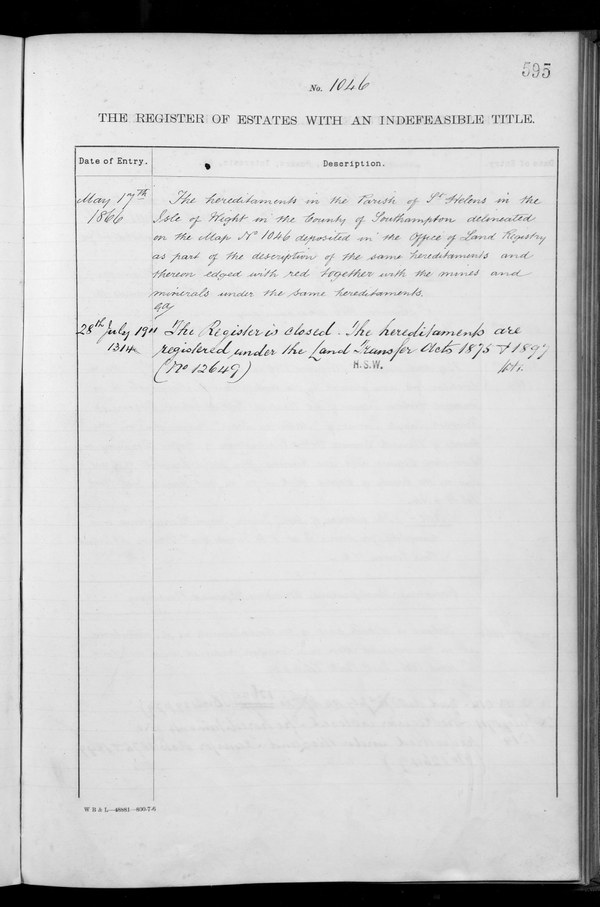 595
No. 1046
THE REGISTER OF ESTATES WITH AN INDEFEASIBLE TITLE.
Date of Entry.
Description.
May 17th
1866
The hereditaments in the Parish of St Helens in the
Isle of Wight in the County of Southampton delineated
on the Map No 1046 deposited in the Office of Land Registry
as part of the description of the same hereditaments and
thereon edged with red together with the mines and
minerals under the same hereditaments.
28th July 1911
1314
The Register is closed. The hereditaments are
registered under the Land Transfer Acts 1875 & 1897
(No 12649)
H.S.W.